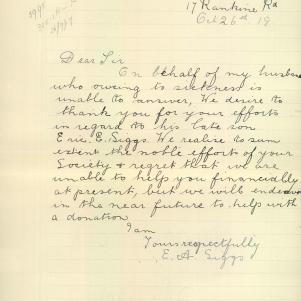 17 Rankine Rd
Oct 26th 18
Dear Sir
On behalf of my husband
who owing to sickness is
unable to answer, We desire to
thank you for your efforts
in regard to his late son
Eric. E. Siggs. We realise to some
extent the noble efforts of your
Society & regret that we are
unable to help you financially
at present, but we will endeavor
in the near future to help with
a donation
I am
Yours respectfully
E. A. Siggs